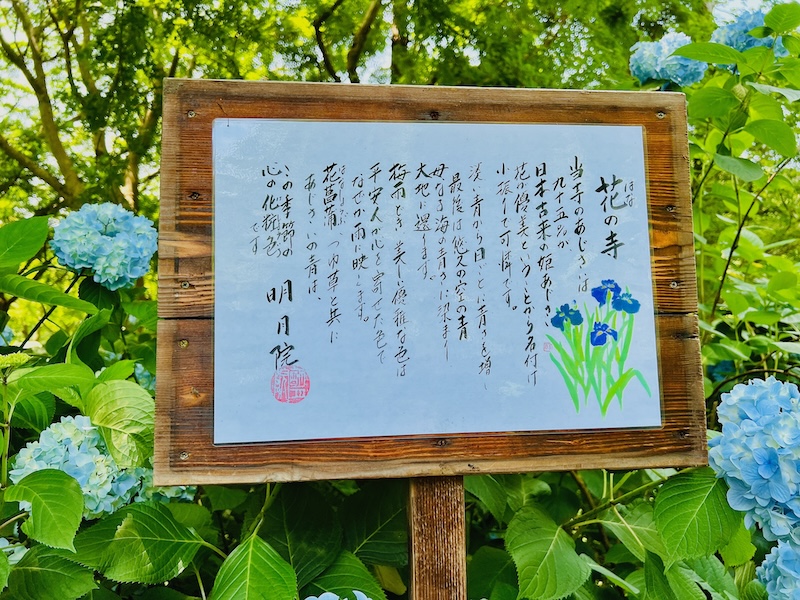 花の寺
はな
当寺のあじさいは
九十五%が
日本古来の姫あじさい
花の姿が美ということから名付け
小振りで可憐です。
淡い青から日ごとに青さを増し
最後は悠久の空の青
母なる海の青さに染まり
大地に還ります。
梅雨どき 美しい優雅な色は
平安人が心を寄せた色で
なぜか雨に映えます。
花菖蒲、つゆ草と共に
はなしょうぶ
あじさいの青は、
この季節の
心の化粧色です
明月院